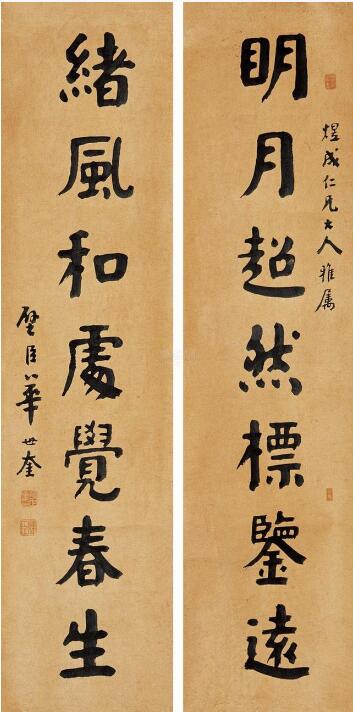 煜成仁兄大人雅属
明月超然標鑒遠
緒風和處覺春生
璧臣華世奎